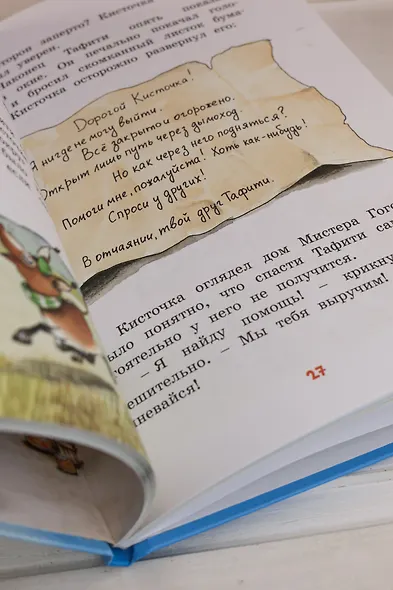 сторон заперто? Кисточка
л уверен.
Наконец Тафити опять показа
окне. Он печально покачал голо
и бросил скомканный листок бума
Кисточка осторожно развернул его:
Дорогой Кисточка!
Я нигде не могу выйти.
Всё закрыто и огорожено.
Открыт лишь путь через дымоход.
Но как через него подняться?
Помоги мне, пожалуйста. Хоть как-нибудь!
Спроси у других!
В отчаянии, твой друг Тафити.
Кисточка оглядел дом Мистера Гого
ыло понятно, что спасти Тафити сам
тоятельно у него не получится.
– Я найду помощь! – крикну
ешительно. – Мы тебя выручим!
ывайся!
27